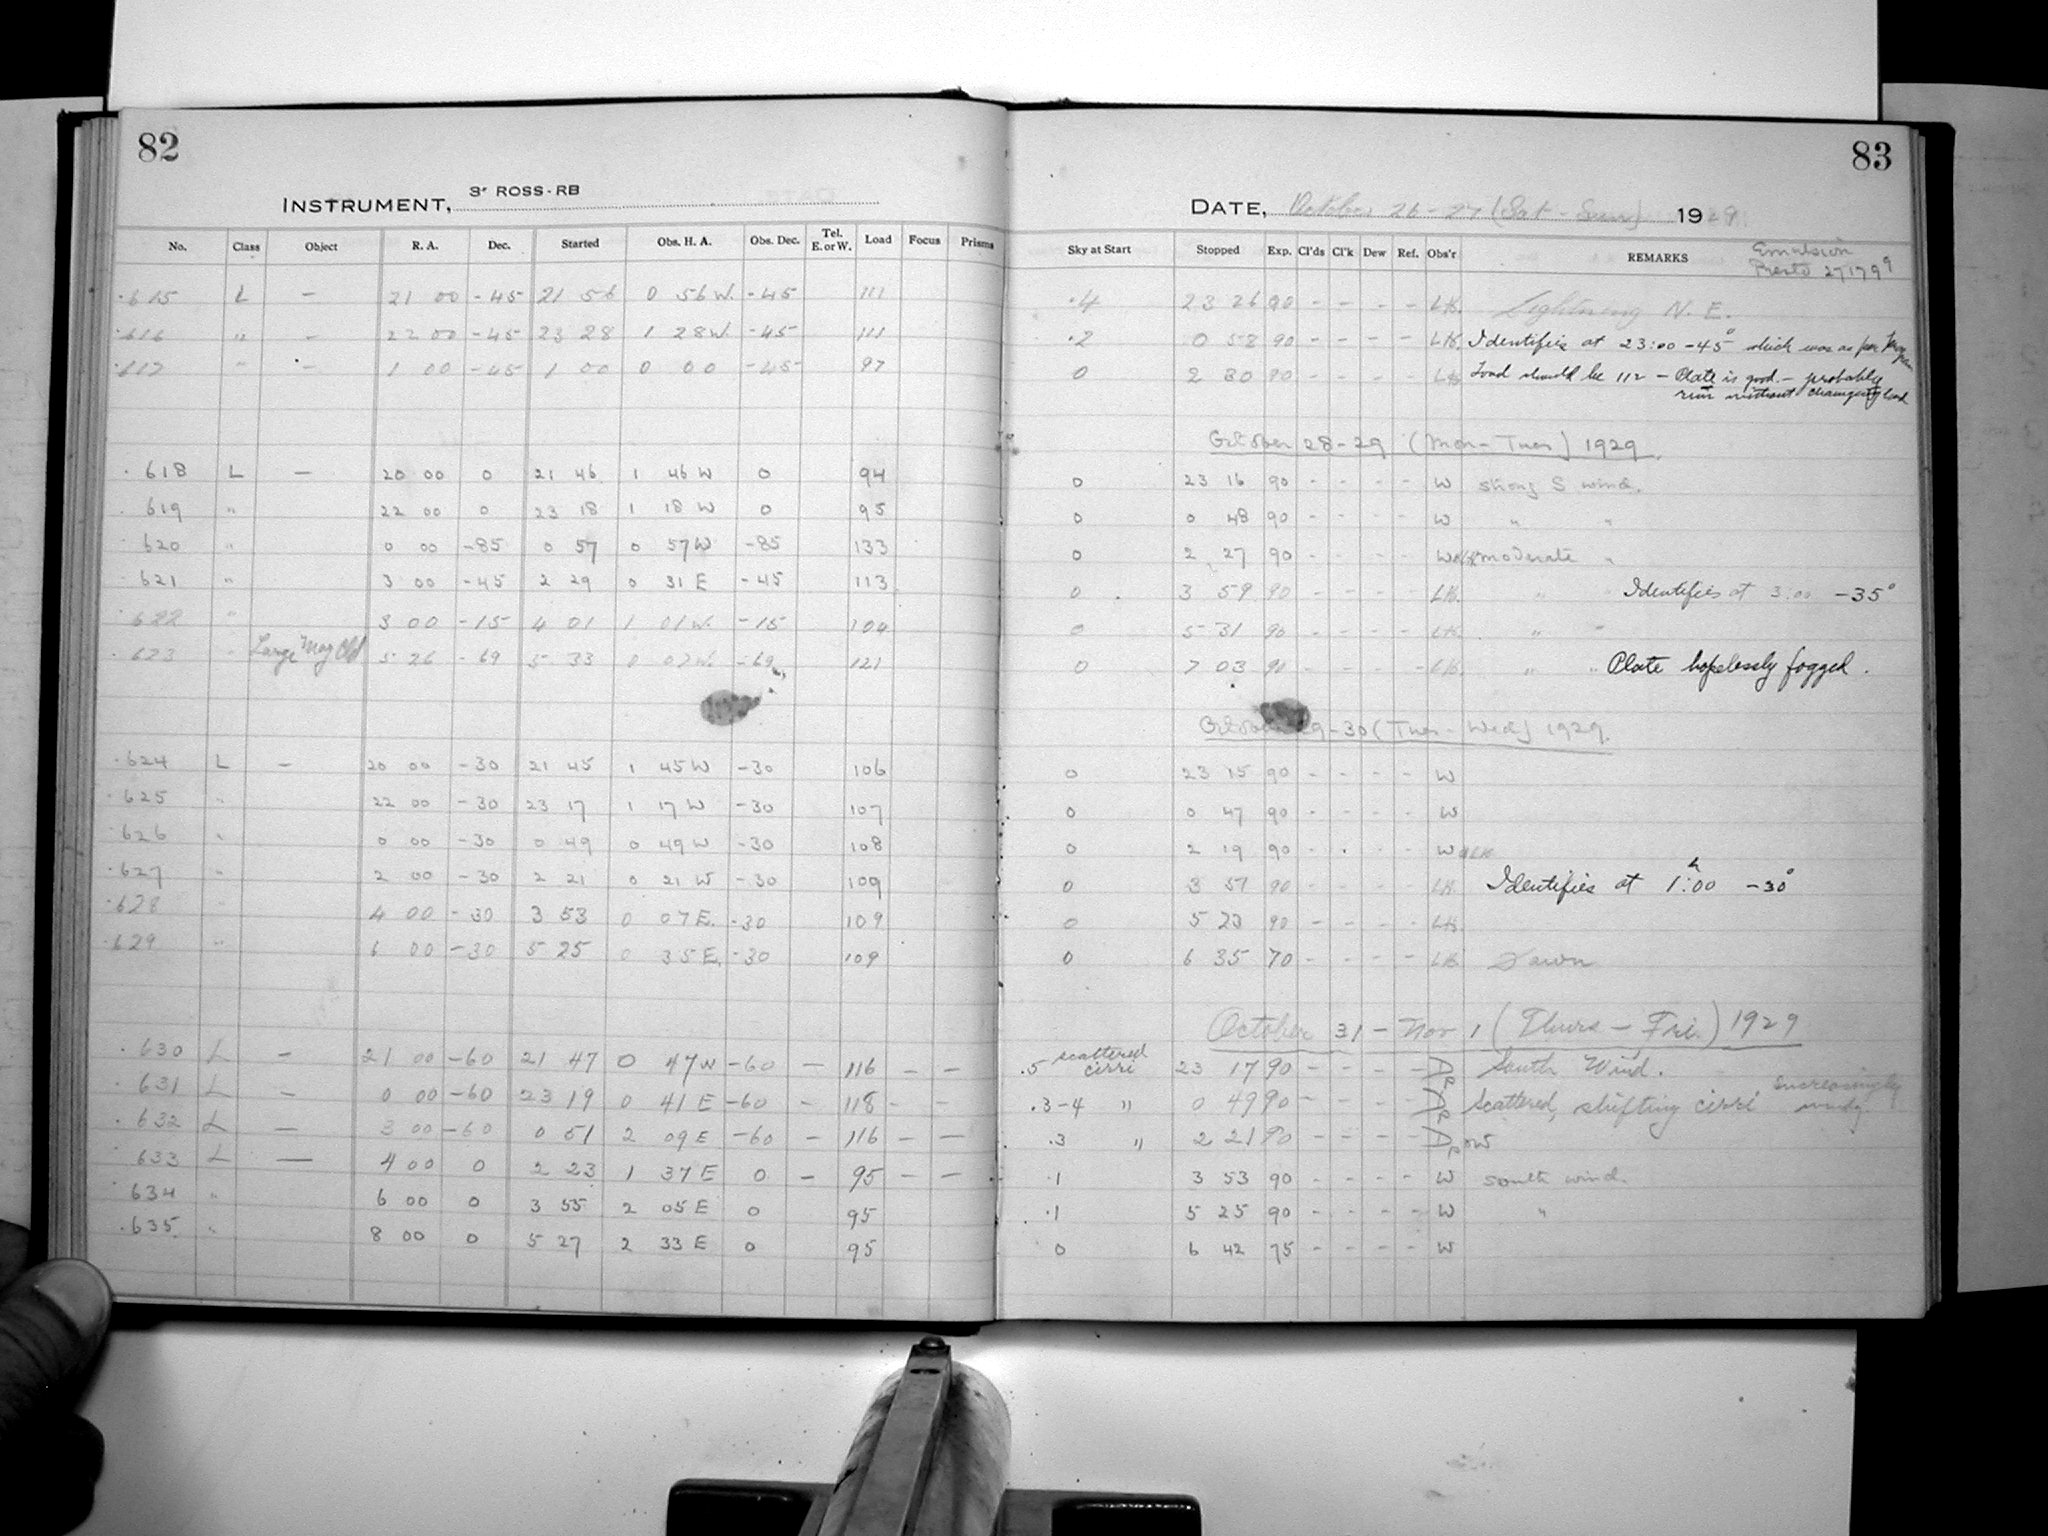 82
INSTRUMENT, 3" ROSS-RB
No. Class Object R. A. Dec. Started Obs. H. A. Obs. Dec. Tel. E. or W. Load Focus Prisms
615 L — 21 00 -45 21 56 0 56 W. -45 111
616 " — 22 00 -45 23 28 1 28 W. -45 111
617 " — 1 00 -45 1 00 0 00 -45 97
618 L — 20 00 0 21 46 1 46 W 0 94
619 " 22 00 0 23 18 1 18 W 0 95
620 " 0 00 -85 0 57 0 57 W -85 133
621 " 3 00 -45 2 29 0 31 E -45 113
622 " 3 00 -15 4 01 1 01 W. -15 104
623 " Large Mag Cld 5 26 -69 5 33 0 07 W. -69 121
624 L — 20 00 -30 21 45 1 45 W -30 106
625 " 22 00 -30 23 17 1 17 W -30 107
626 " 0 00 -30 0 49 0 49 W -30 108
627 " 2 00 -30 2 21 0 21 W -30 109
628 " 4 00 -30 3 53 0 07 E. -30 109
629 " 6 00 -30 5 25 0 35 E. -30 109
630 L — 21 00 -60 21 47 0 47 W -60 — 116 — —
631 L — 0 00 -60 23 19 0 41 E -60 — 118 — —
632 L — 3 00 -60 0 51 2 09 E -60 — 116 — —
633 L — 4 00 0 2 23 1 37 E 0 — 95 — —
634 " 6 00 0 3 55 2 05 E 0 95
635 " 8 00 0 5 27 2 33 E 0 95
83
DATE, October 26-27 (Sat-Sun) 1929.
Sky at Start Stopped Exp. Cl'ds Cl'k Dew Ref. Obs'r REMARKS Emulsion Presto 271799
.4 23 26 90 - - - - LK. Lightning N. E.
.2 0 58 90 - - - - LK. Identifies at 23:00 -45° which was as per
0 2 30 90 - - - - LK Load should be 112 - Plate is good - probably
run without changing load
October 28-29 (Mon-Tues) 1929.
0 23 16 90 - - - - W strong S wind.
0 0 48 90 - - - - W " "
0 2 27 90 - - - - W moderate "
0 3 59 90 - - - - LK. " " Identifies at 3:00 -35°
0 5 31 90 - - - - LK. " "
0 7 03 90 - - - - LK. " " Plate hopelessly fogged.
October 29-30 (Tues-Wed) 1929.
0 23 15 90 - - - - W
0 0 47 90 - - - - W
0 2 19 90 - - - - W
0 3 51 90 - - - - LK. Identifies at 1h:00 -30°
0 5 23 90 - - - - LK.
0 6 35 70 - - - - LK. Dawn
October 31 - Nov 1 (Thurs - Fri.) 1929
.5 scattered cirri 23 17 90 - - - - South Wind.
.3-4 " 0 49 90 - - - - Scattered, shifting cirri increasingly windy
.3 " 2 21 90 - - - -
.1 3 53 90 - - - - W south wind.
.1 5 25 90 - - - - W "
0 6 42 75 - - - - W